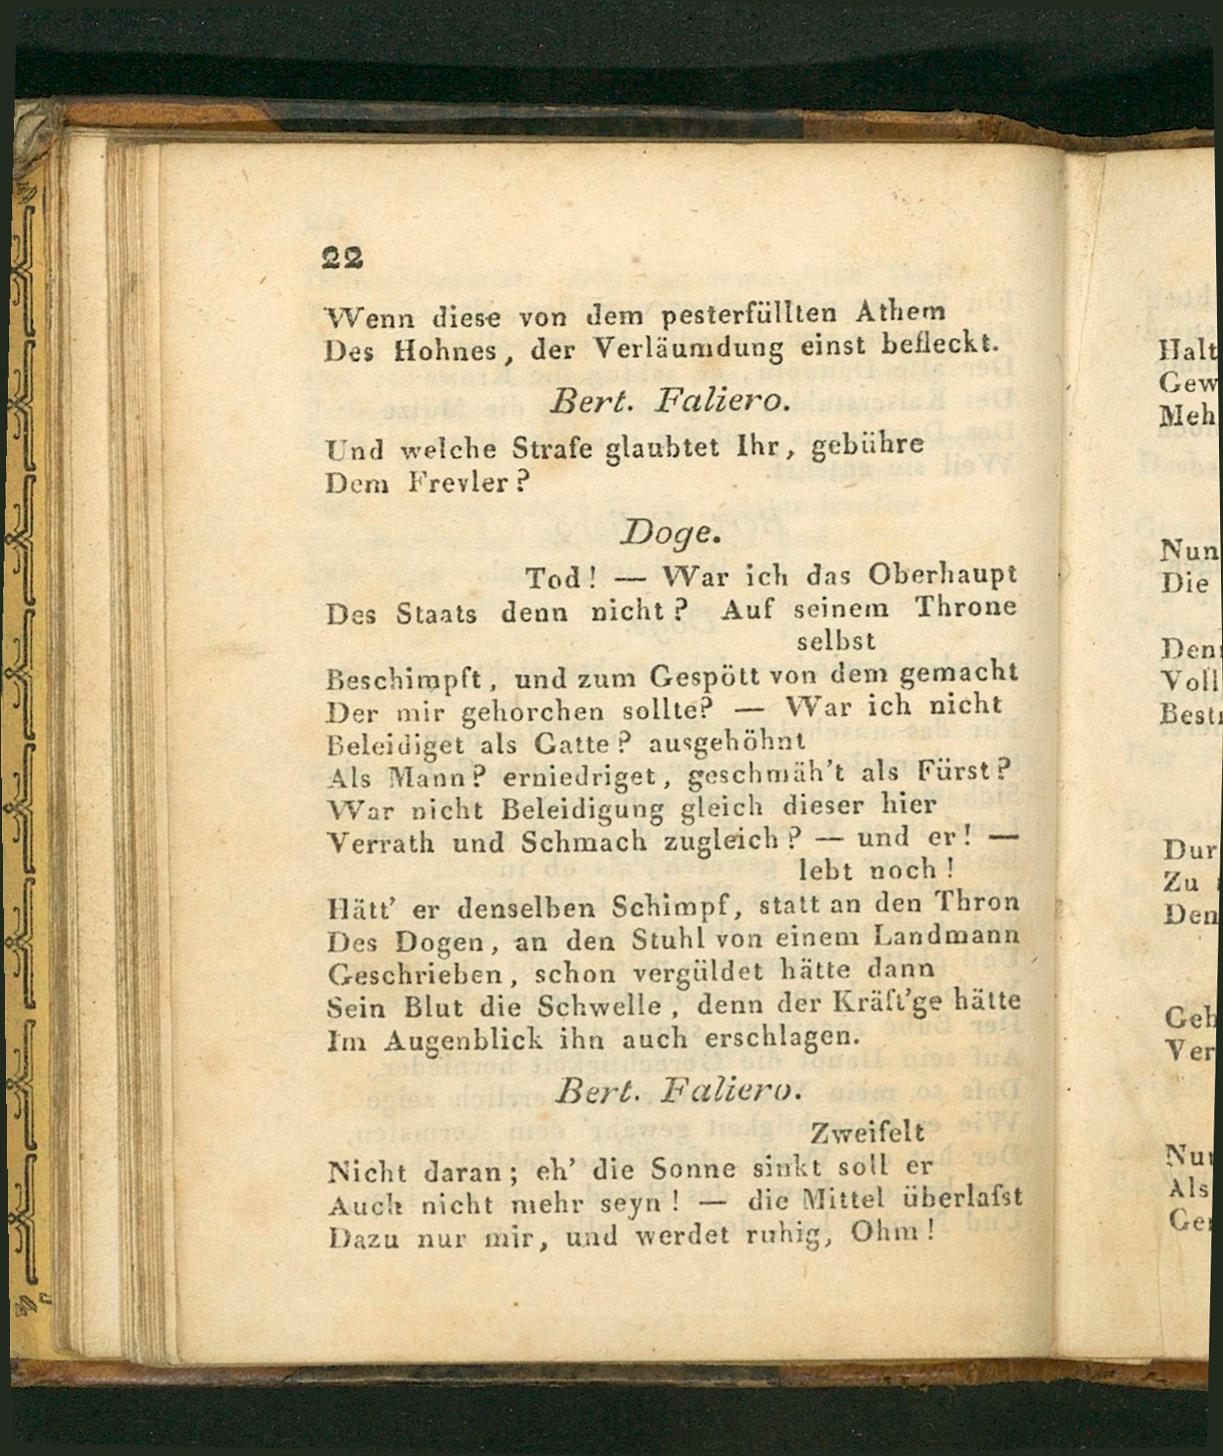 22
Wenn diese von dem pesterfüllten Athem
Des Hohnes, der Verläumdung einst befleckt.
Bert. Faliero.
Und welche Strafe glaubtet Ihr, gebühre
Dem Frevler?
Doge.
Tod! — War ich das Oberhaupt
Des Staats denn nicht? Auf seinem Throne
selbst
Beschimpft, und zum Gespött von dem gemacht
Der mir gehorchen sollte? — War ich nicht
Beleidiget als Gatte? ausgehöhnt
Als Mann? erniedriget, geschmäh't als Fürst?
War nicht Beleidigung gleich dieser hier
Verrath und Schmach zugleich? — und er! —
lebt noch!
Hätt' er denselben Schimpf, statt an den Thron
Des Dogen, an den Stuhl von einem Landmann
Geschrieben, schon vergüldet hätte dann
Sein Blut die Schwelle, denn der Kräft'ge hätte
Im Augenblick ihn auch erschlagen.
Bert. Faliero.
Zweifelt
Nicht daran; eh' die Sonne sinkt soll er
Auch nicht mehr seyn! — die Mittel überlaſst
Dazu nur mir, und werdet ruhig, Ohm!
Halt
Gew
Meh
Nun
Die
Den
Voll
Best
Dur
Zu
Den
Geh
Ver
Nu
Als
Ge